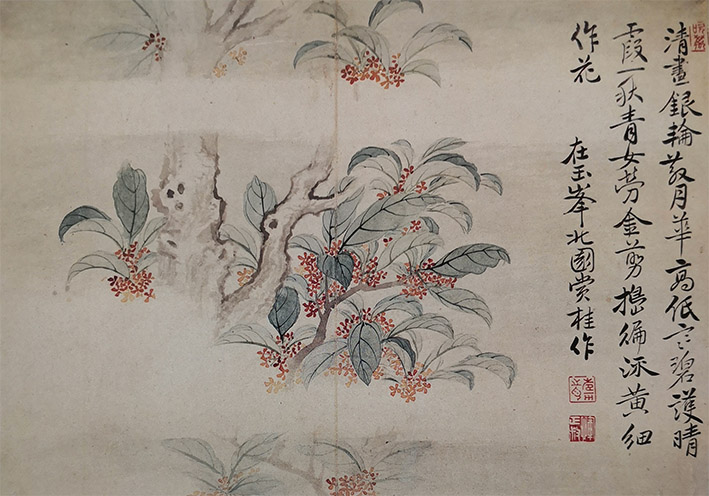 清晝銀輪散月華高低碧護晴
霞一秋青女勞金剪搗徧流黃細
作花
在玉峯北園賞桂作